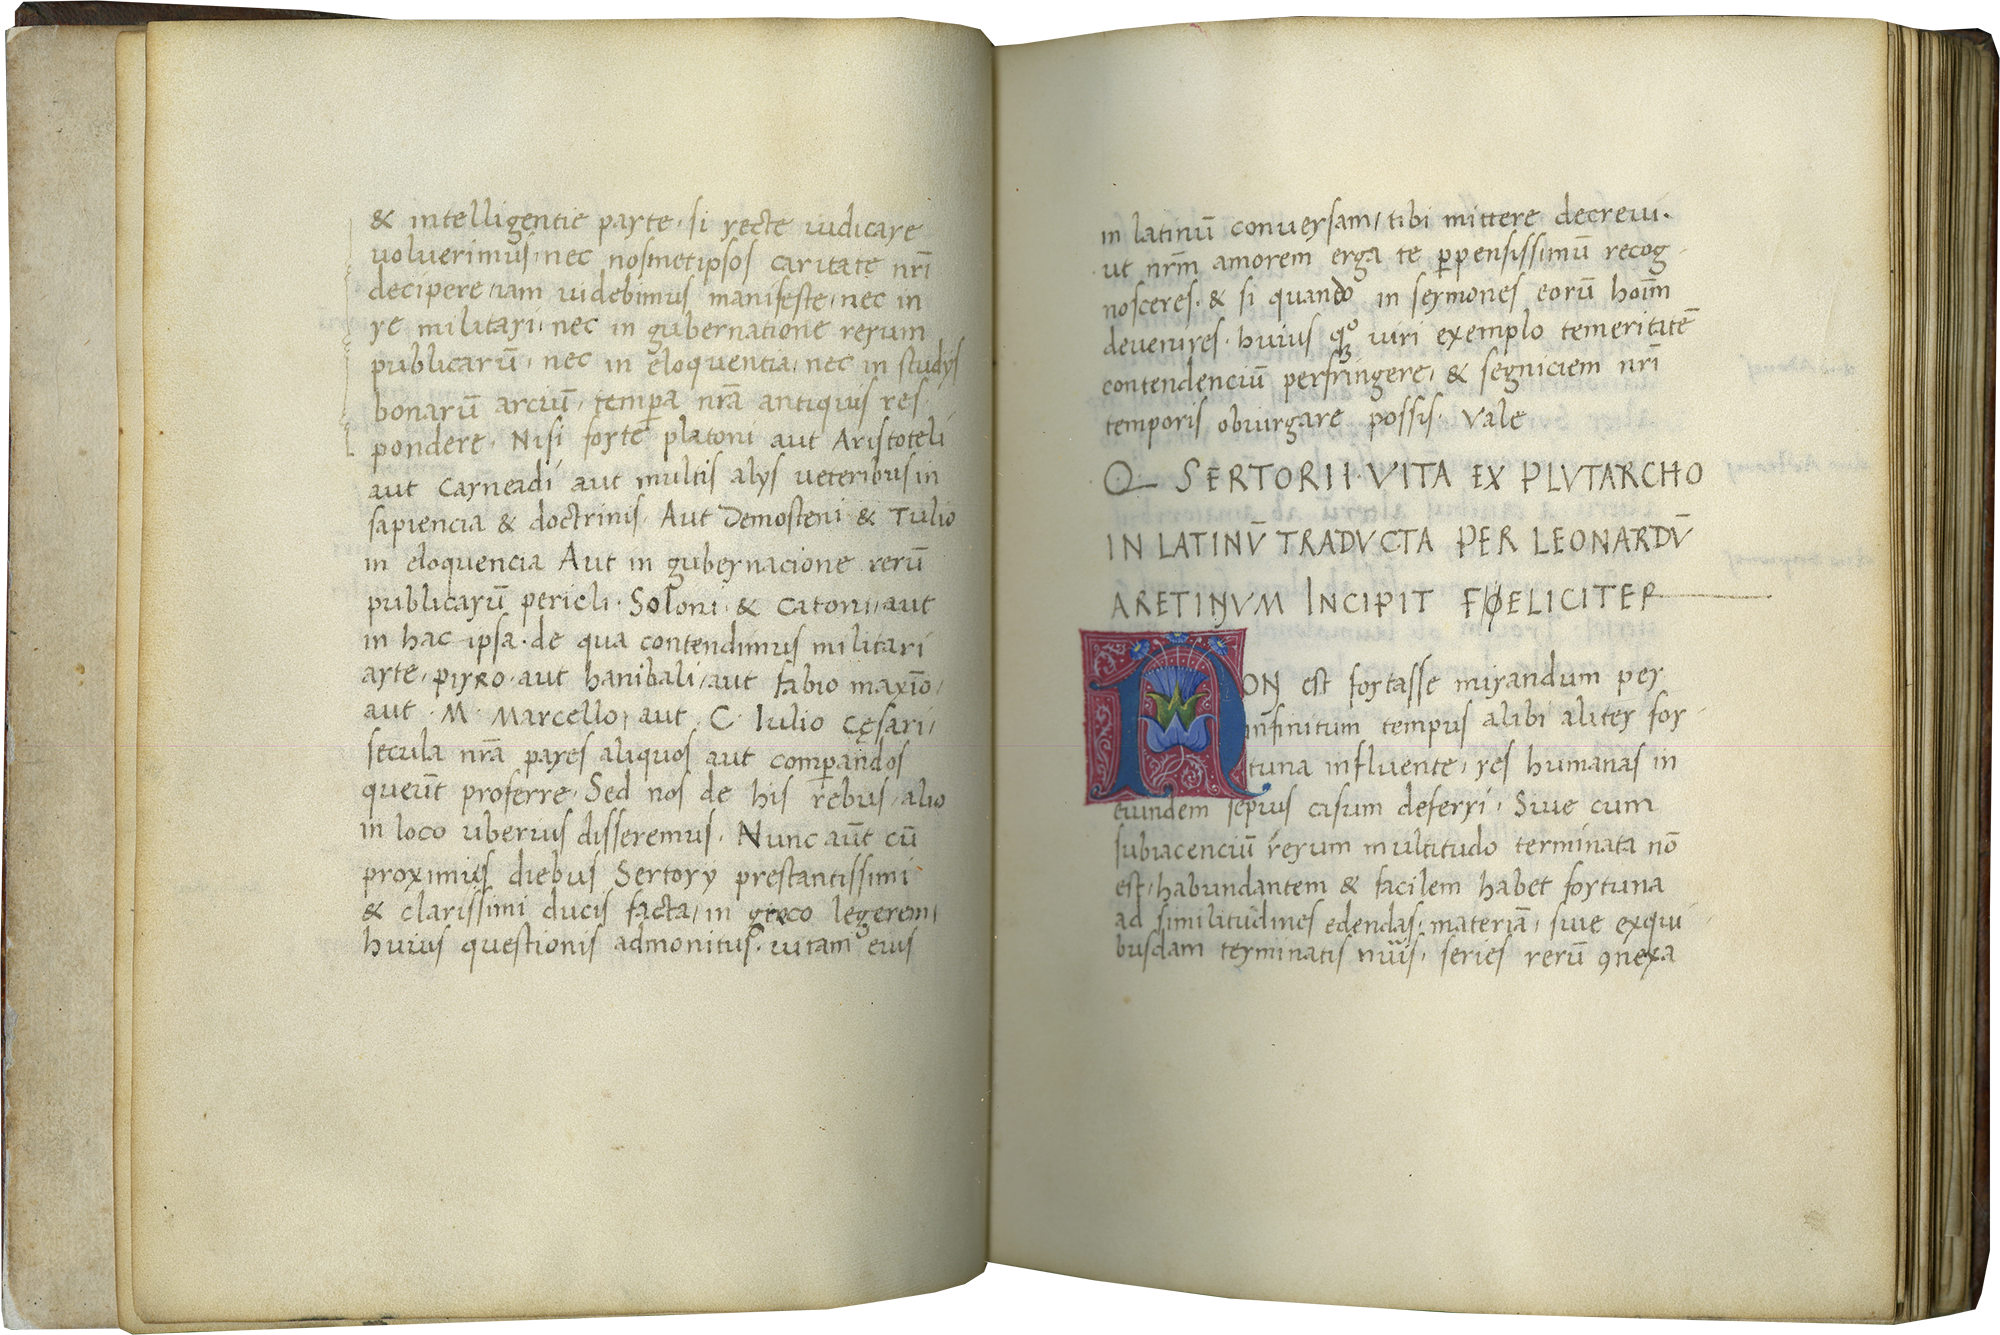 & intelligentie parte. si recte iudicare
uoluerimus, nec nosmetipsos caritate nr̄i
decipere, iam uidebimus manifeste, nec in
re militari, nec in gubernatione rerum
publicarū, nec in eloquentia, nec in studys
bonarū arciū, tempa nr̄a antiquis res
pondere. Nisi forte platoni aut Aristoteli
aut Carneadi aut multis alys ueteribus in
sapiencia & doctrinis. Aut Demosteni & Tulio
in eloquencia Aut in gubernacione rerū
publicarū pericli. Soloni. & Catoni, aut
in hac ipsa. de qua contendimus militari
arte, pirro. aut hanibali, aut fabio maxīo,
aut. M. Marcello, aut. C. Iulio Cęsari,
secula nr̄a pares aliquos aut comparandos
querūt proferre. Sed nos de his rebus, alio
in loco uberius disseremus. Nunc aūt cū
proximis diebus Sertory prestantissimi
& clarissimi ducis facta, in greco legerem,
huius questionis admonitus. uitam eius
in latinū conuersam, tibi mittere decreui.
ut nr̄m amorem erga te ꝑpensissimū recog
nosceres. & si quando in sermones eorū hoīm
deuenires. huius qoqꝫ uiri exemplo temeritatē
contendenciū perfringere, & segniciem nr̄i
temporis obiurgare possis. Vale
Q SERTORII. VITA EX PLVTARCHO
IN LATINV̄ TRADVCTA PER LEONARDV̄
ARETINVM INCIPIT FOELICITER
NON est fortasse mirandum per
infinitum tempus alibi aliter for
tuna influente, res humanas in
eundem sepius casum deferri. Siue cum
subiacenciū rerum multitudo terminata nō
est, habundantem & facilem habet fortuna
ad similitudines edendas, materiā, siue exqui
busdam terminatis nūis, series rerū ꝯnexa